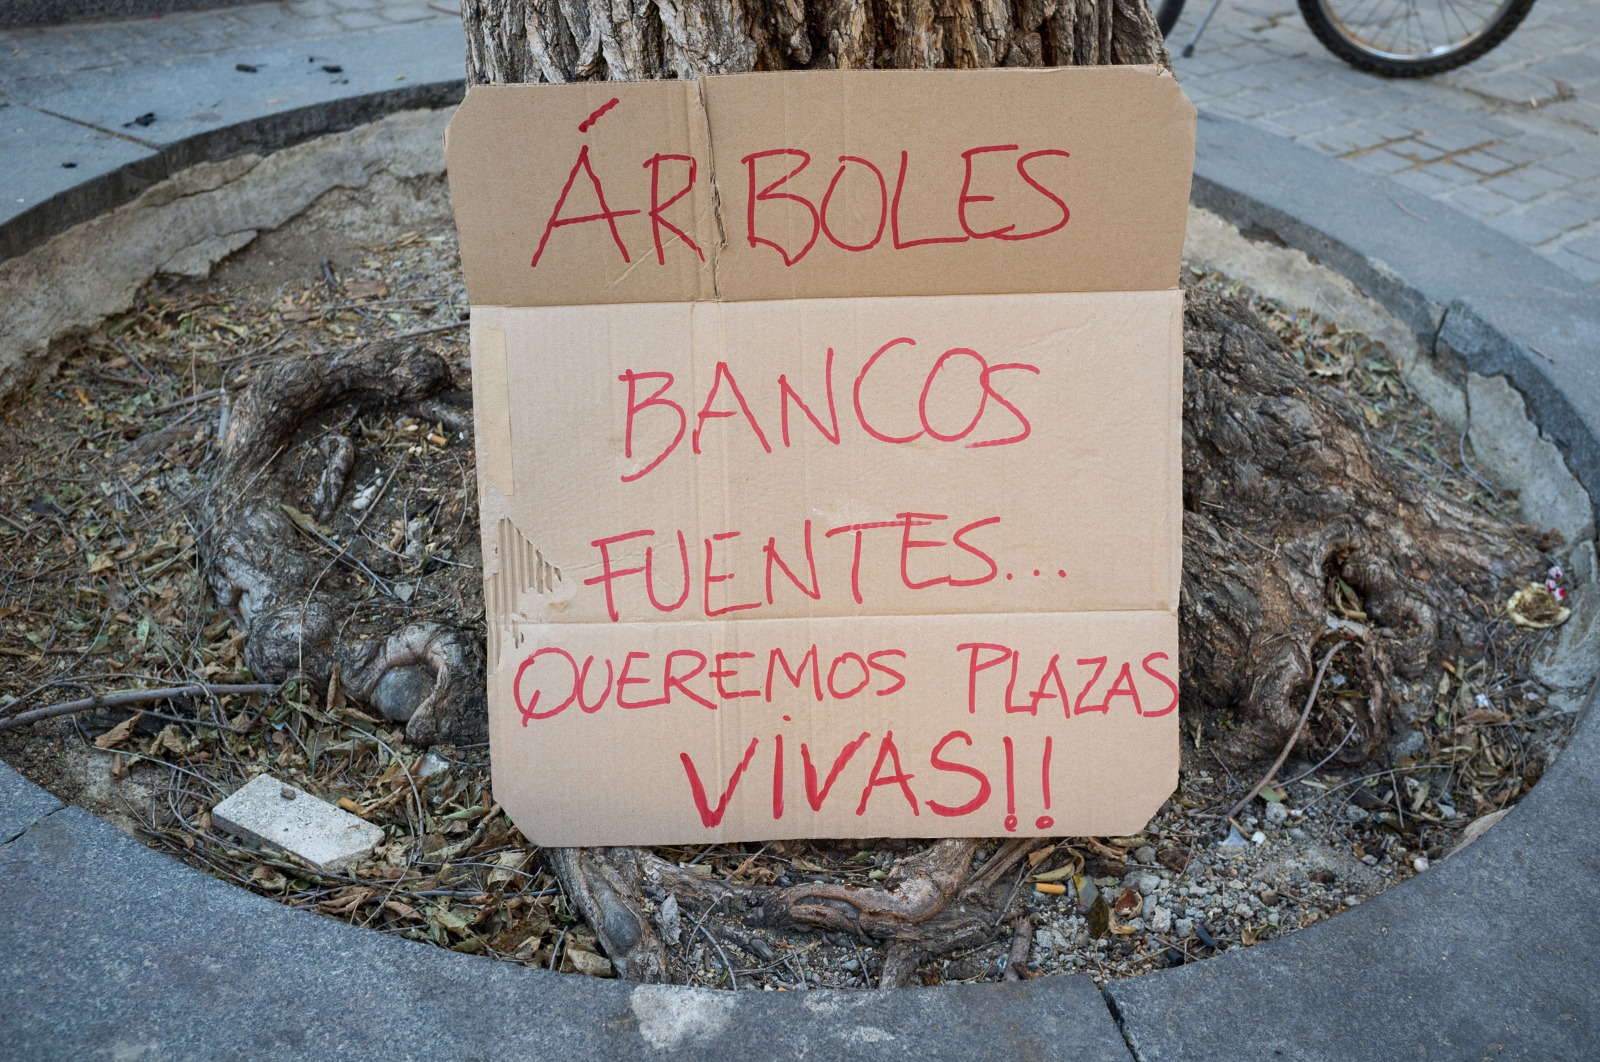 ÁRBOLES
BANCOS
FUENTES...
QUEREMOS PLAZAS
VIVAS!!